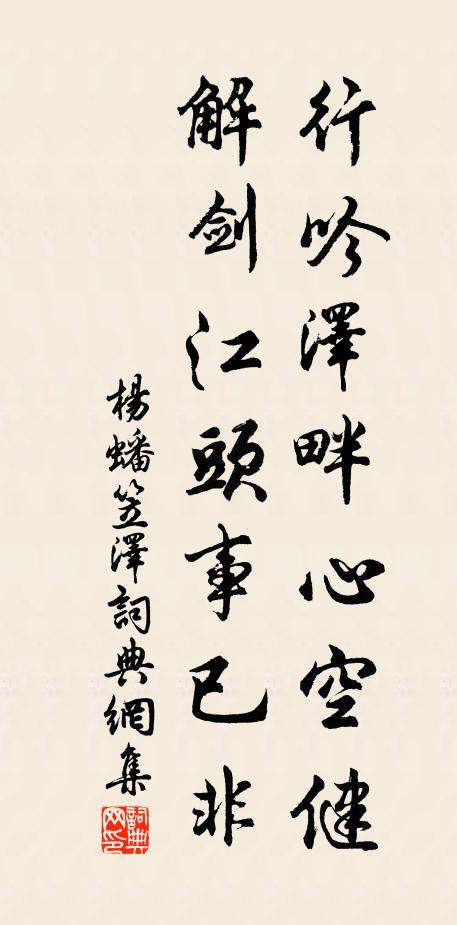 行吟澤畔心空健
解剑江頭事已非
楊蟠笠澤詞典網集
詞典网印